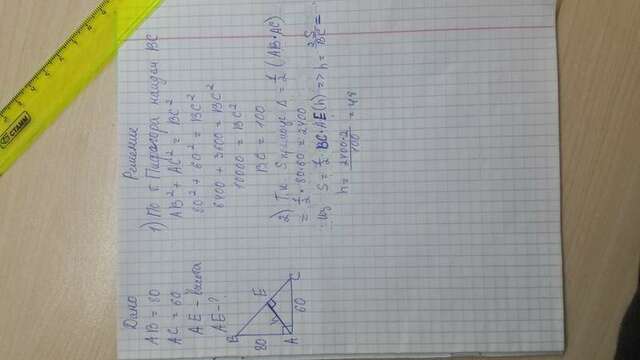 Дано
AB = 80
AC = 60
AE - высота
AE - ?
B
E
C
A
80
60
h
Решение
1) По т Пифагора найдем BC
AB² + AC² = BC²
80² + 60² = BC²
6400 + 3600 = BC²
10000 = BC²
BC = 100
2) Т.к S прямоуг Δ = 1/2 (AB·AC)
= 1/2 · 80·60 = 2400
S = 1/2 BC·AE(h) => h = 2S/BC =
h = 2400·2/100 = 48
СТАММ